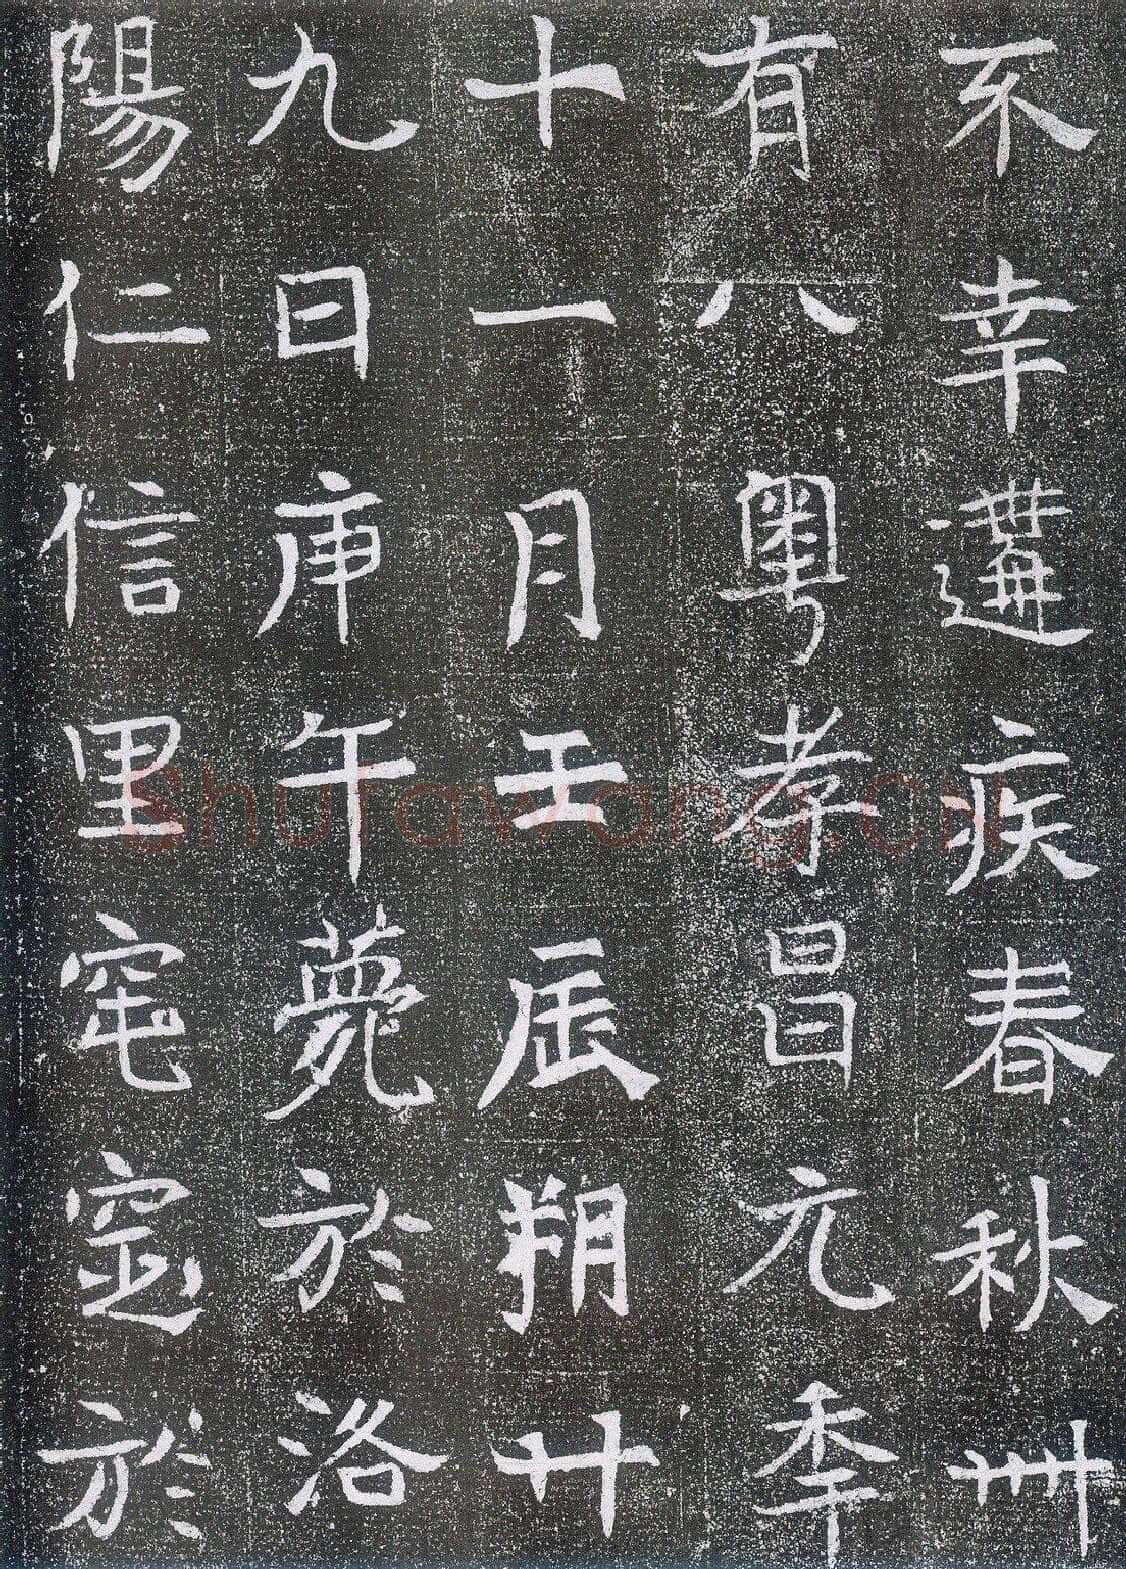 不幸遘疾春秋卌
有八粤孝昌元季
十一月壬辰朔廿
九日庚午薨於洛
陽仁信里窀窆於
Shufawang.CN